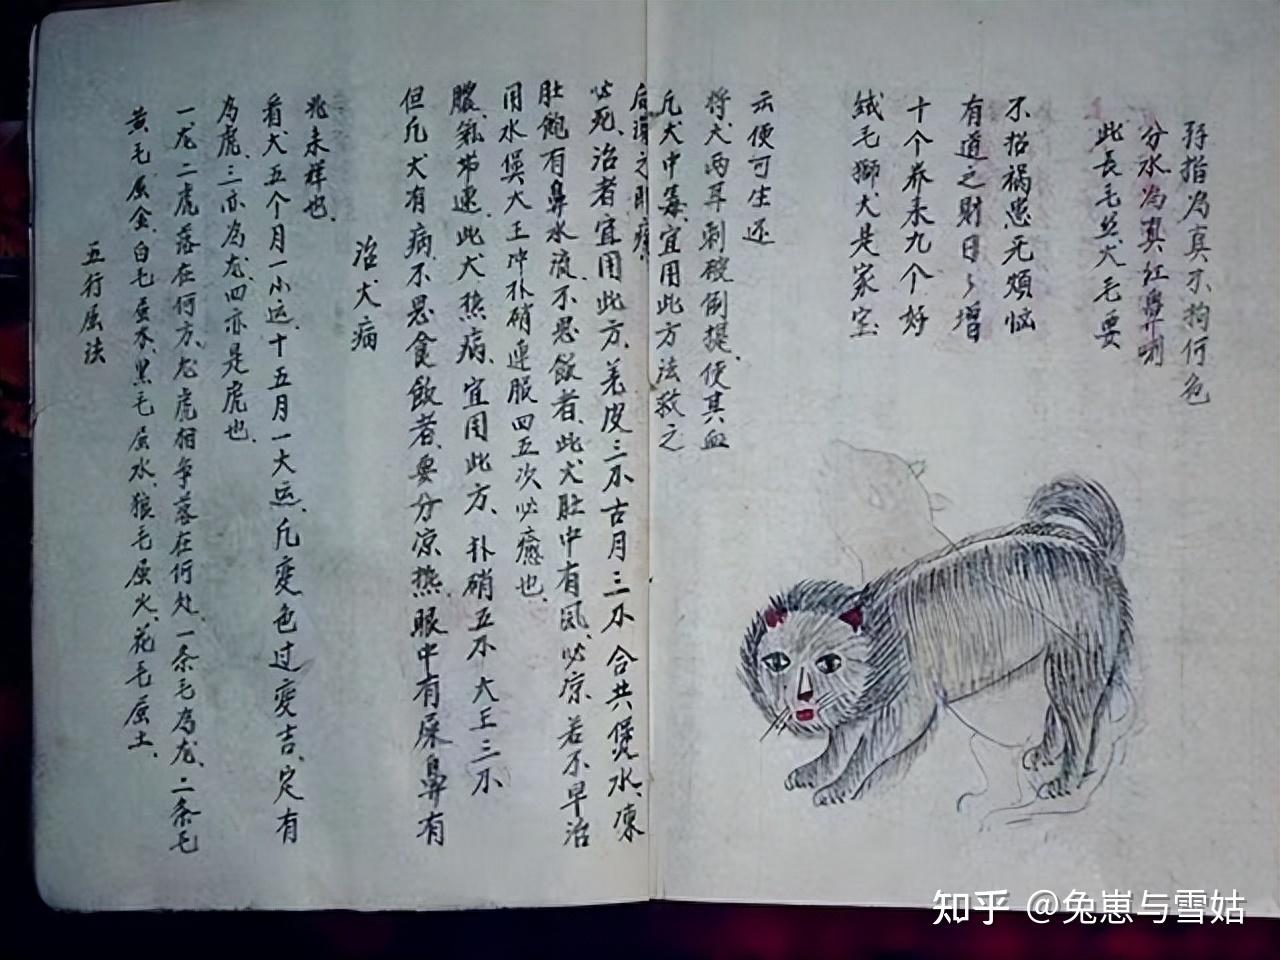 五行属法
黄毛属金、白毛属木、黑毛属水、狼毛属火、花毛属土、
一龙二虎落在何方、龙虎相争落在何处、一条毛為龙、二条毛
為虎、三亦為龙、四亦是虎也、
看犬五个月一小运、十五月一大运、凡变色过变吉、定有
兆未祥也、
治犬病
但凡犬有病、不思食飲者、要分凉热、眼中有屎鼻有
膿、氣带速、此犬热病、宜用此方、朴硝五不大王三不
用水煲大王冲朴硝連服四五次必癒也、
肚飽有鼻水流、不思飲者、此犬肚中有風、必凉若不早治
必死、治者宜用此方、羌皮三不古月三不合共煲水、凍
后灌之即癒
凡犬中毒、宜用此方法救之
将犬两耳刺破倒提、使其血
云便可生还
絨毛獅犬是家宝
十个养来九个好
有道之財日々增
不招祸患无煩恼
此長毛丝犬毛要
分水為真红鼻唎
孖指為真不拘何色
知乎 @兔崽与雪姑